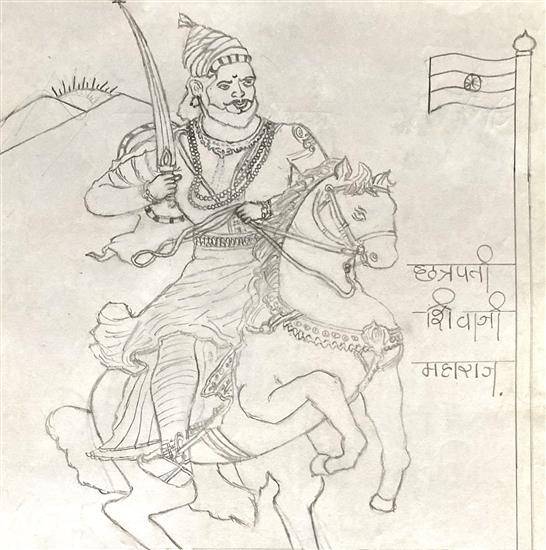 छत्रपती
शिवाजी
महाराज.